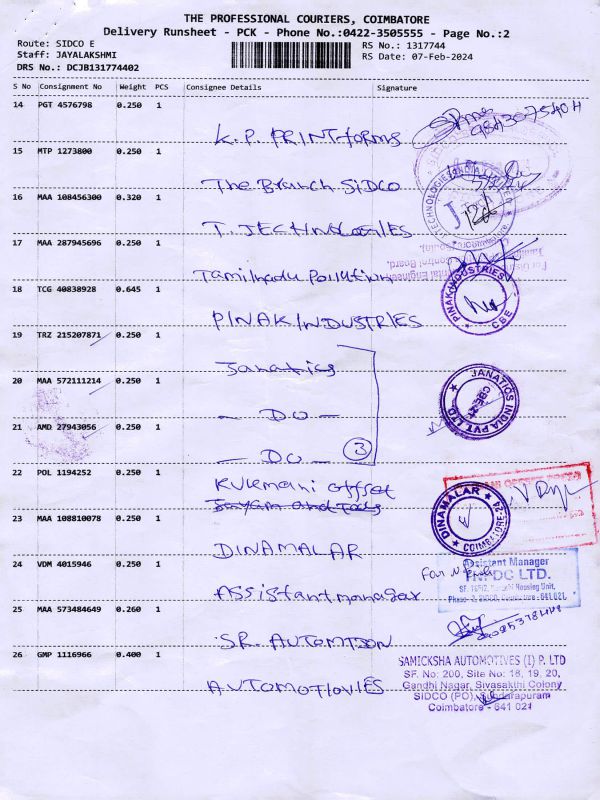 THE PROFESSIONAL COURIERS, COIMBATORE
Delivery Runsheet - PCK - Phone No.:0422-3505555 - Page No.:2
Route: SIDCO E
Staff: JAYALAKSHMI
DRS No.: DCJB131774402
RS No.: 1317744
RS Date: 07-Feb-2024
S No Consignment No Weight PCS Consignee Details Signature
14 PGT 4576798 0.250 1
K.P. PRINT forms
15 MTP 1273800 0.250 1
The Branch SIDCO
16 MAA 108456300 0.320 1
T. JECTINOLOGIES
17 MAA 287945696 0.250 1
Tamilnadu Pollution
18 TCG 40838928 0.645 1
PINAK INDUSTRIES
PINAK INDUSTRIES
CBE
19 TRZ 215207871 0.250 1
Janatics
20 MAA 572111214 0.250 1
- DO -
JANATICS INDIA PVT LTD
CBE-21
21 AMD 27943056 0.250 1
- DO -
3
22 POL 1194252 0.250 1
Kulemani offset
23 MAA 108810078 0.250 1
DINAMALAR
DINAMALAR
COIMBATORE-24
24 VDM 4015946 0.250 1
Assistant manager
Assistant Manager
25 MAA 573484649 0.260 1
SR. AUTOMTION
26 GMP 1116966 0.400 1
AUTOMOTIOVIES
SAMICKSHA AUTOMOTIVES (I) P. LTD
SF. No: 200, Site No: 18, 19, 20,
Gandhi Nagar, Sivasakthi Colony
SIDCO (PO), Sundarapuram
Coimbatore - 641 021